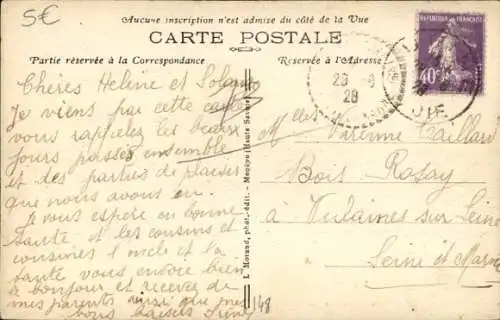 5€
Aucune inscription n'est admise du côté de la Vue
CARTE POSTALE
Partie réservée à la Correspondance
Réservée à l'Adresse
REPUBLIQUE FRANÇAISE
40c
28
Chères Helène et Solange
Je viens par cette carte
vous rappeler les beaux
jours passés ensemble
et des parties de plaisir
que nous avons eu.
Je vous espère en bonne
santé et les cousins et
cousines l'oncle et la
tante vous envoie bien
le bonjour et recevez de
mes parents ainsi que mes
bons baisers
L. Morand, phot.-édit. - Megève (Haute Savoie)
148
Melles Vivienne Caillard
Bois Rosay
à Vulaines sur Seine
Seine et Marne